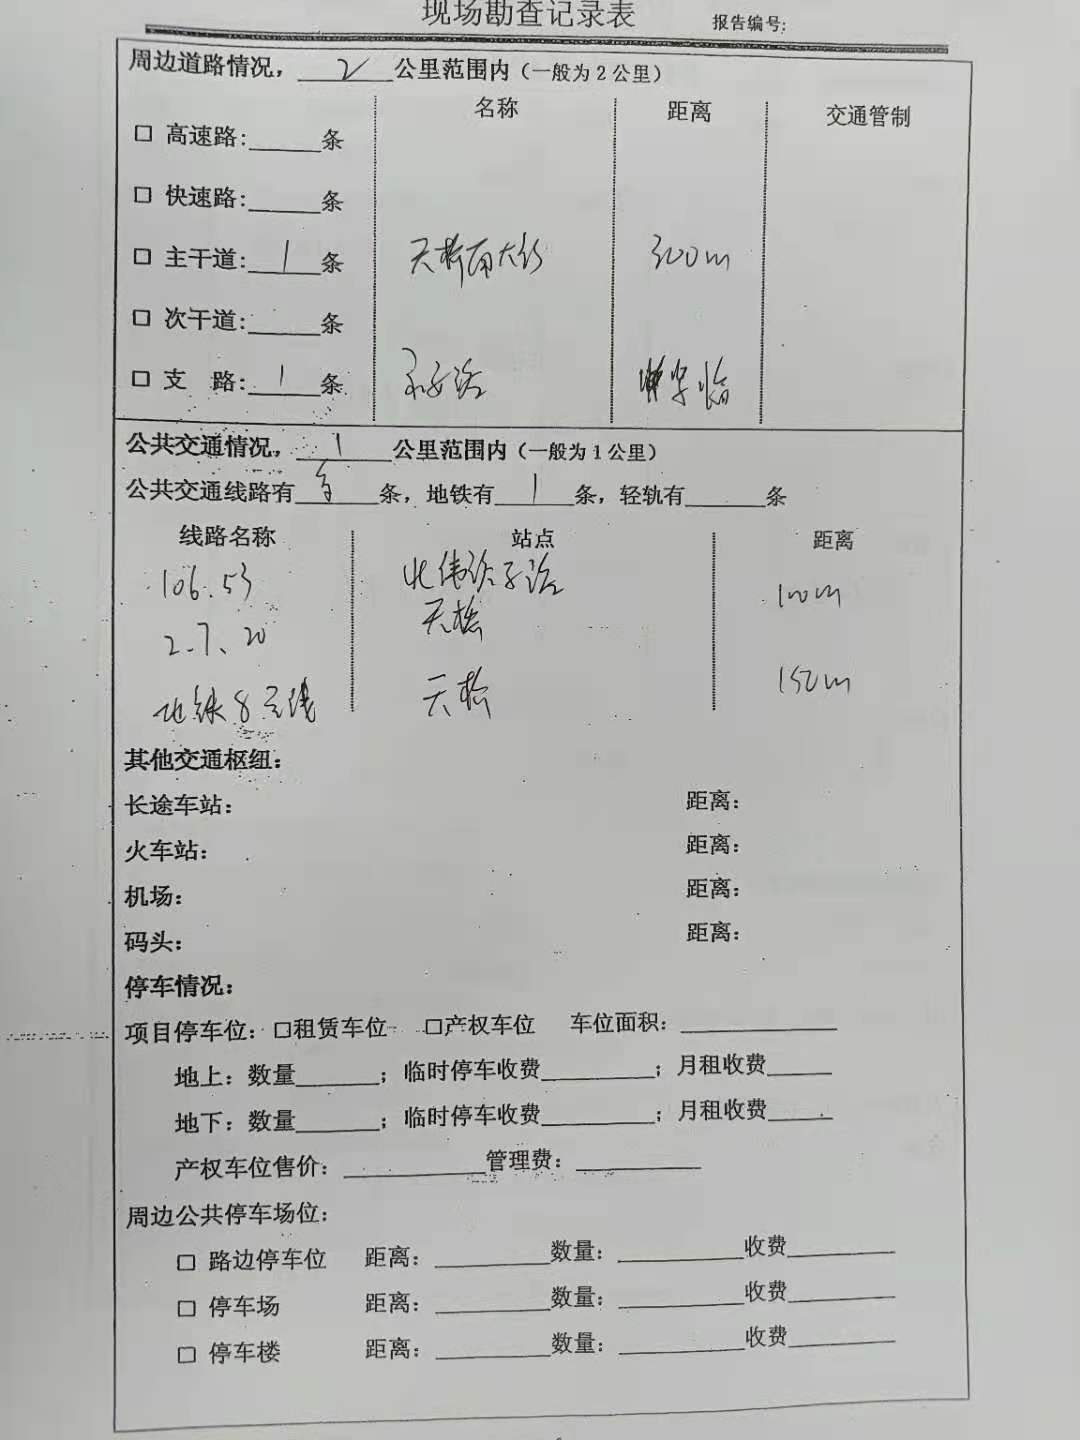 现场勘查记录表 报告编号:
周边道路情况，2公里范围内（一般为2公里）
名称 距离 交通管制
□ 高速路:______条
□ 快速路:______条
□ 主干道:1条 天桥南大街 300m
□ 次干道:______条
□ 支 路:1条 临
公共交通情况，1公里范围内（一般为1公里）
公共交通线路有多条，地铁有1条，轻轨有______条
线路名称 站点 距离
106.53 北纬路 100m
2.7、20 天桥
地铁8号线 天桥 150m
其他交通枢纽：
长途车站： 距离：
火车站： 距离：
机场： 距离：
码头： 距离：
停车情况：
项目停车位：□租赁车位 □产权车位 车位面积：____________
地上：数量______；临时停车收费________；月租收费_____
地下：数量______；临时停车收费________；月租收费_____
产权车位售价：__________管理费：__________
周边公共停车场位：
□ 路边停车位 距离：________数量：_________收费________
□ 停车场 距离：________数量：_________收费________
□ 停车楼 距离：________数量：_________收费________